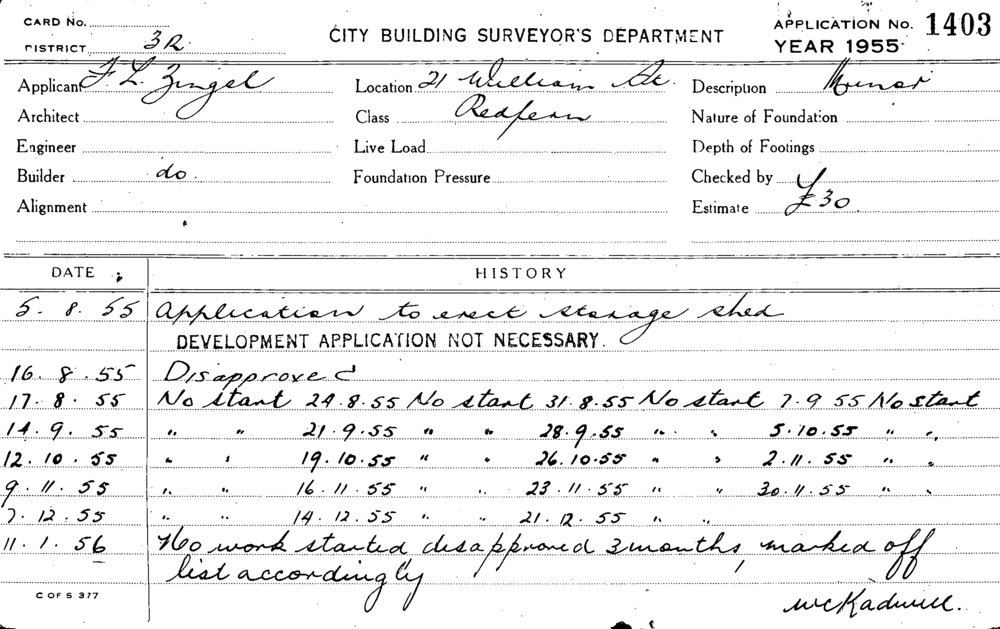 CARD No.
DISTRICT 3R
CITY BUILDING SURVEYOR'S DEPARTMENT
APPLICATION No. 1403
YEAR 1955
Applicant F L Zingel
Location 21 William St.
Description Minor
Architect
Class Redfern
Nature of Foundation
Engineer
Live Load
Depth of Footings
Builder do.
Foundation Pressure
Checked by
Alignment
Estimate £30
DATE HISTORY
5. 8. 55 Application to erect storage shed
DEVELOPMENT APPLICATION NOT NECESSARY.
16. 8. 55 Disapproved
17. 8. 55 No start 24.8.55 No start 31.8.55 No start 7.9 55 No start
14. 9. 55 " " 21.9.55 " " 28.9.55 " " 5.10.55 " "
12. 10. 55 " " 19.10.55 " " 26.10.55 " " 2.11.55 " "
9. 11. 55 " " 16.11.55 " " 23.11.55 " " 30.11.55 " "
7. 12. 55 " " 14.12.55 " " 21.12.55 " "
11. 1. 56 No work started disapproved 3 months, marked off
list accordingly
C OF S 377